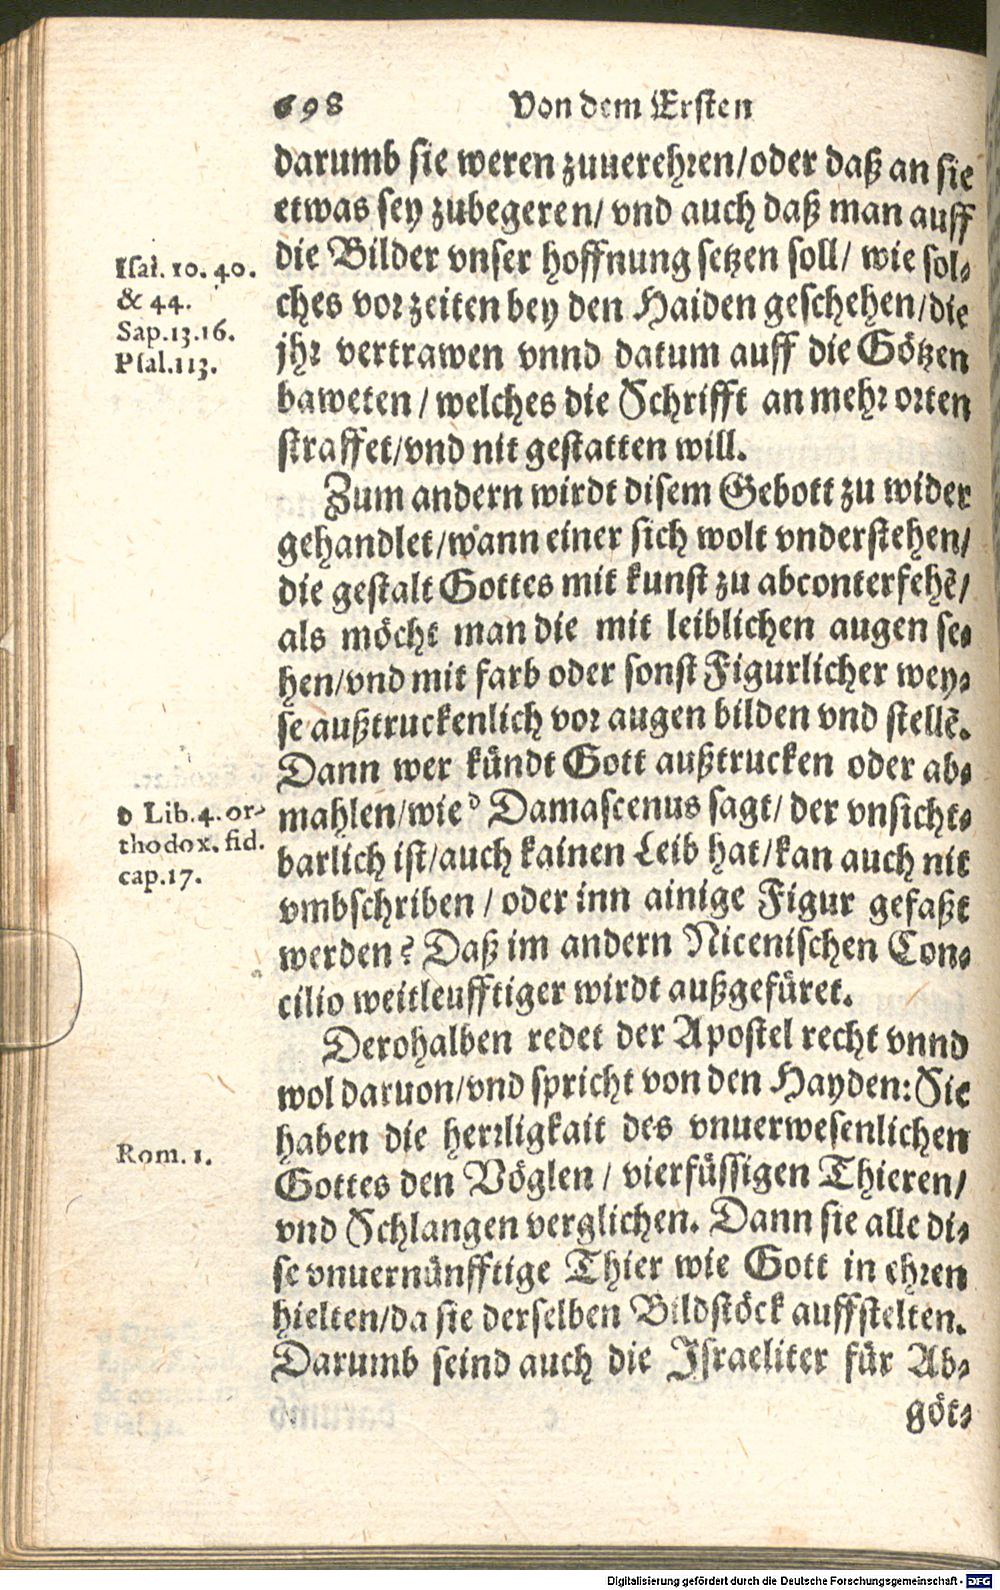 698 Von dem Ersten
darumb sie weren zuuerehren/oder daß an sie
etwas sey zubegeren/ vnd auch daß man auff
die Bilder vnser hoffnung setzen soll/ wie sol⸗
ches vorzeiten bey den Haiden geschehen/die
jhr vertrawen vnnd datum auff die Götzen
baweten/ welches die Schrifft an mehr orten
straffet/vnd nit gestatten will.
Isai. 10. 40.
& 44.
Sap.13.16.
Psal.113.
Zum andern wirdt disem Gebott zu wider
gehandlet/wann einer sich wolt vnderstehen/
die gestalt Gottes mit kunst zu abconterfehẽ/
als möcht man die mit leiblichen augen se⸗
hen/vnd mit farb oder sonst Figurlicher wey⸗
se außtruckenlich vor augen bilden vnd stellẽ.
Dann wer kündt Gott außtrucken oder ab⸗
mahlen/wie ᵈ Damascenus sagt/ der vnsicht⸗
barlich ist/auch kainen Leib hat/kan auch nit
vmbschriben/ oder inn ainige Figur gefaßt
werden? Daß im andern Nicenischen Con⸗
cilio weitleufftiger wirdt außgefüret.
d Lib.4. or-
thodox. fid.
cap.17.
Derohalben redet der Apostel recht vnnd
wol daruon/vnd spricht von den Hayden: Sie
haben die herrligkait des vnuerwesenlichen
Gottes den Vöglen/ vierfüssigen Thieren/
vnd Schlangen verglichen. Dann sie alle di⸗
se vnuernünfftige Thier wie Gott in ehren
hielten/da sie derselben Bildstöck auffstelten.
Darumb seind auch die Israeliter für Ab⸗
göt⸗
Rom. 1.
Digitalisierung gefördert durch die Deutsche Forschungsgemeinschaft - DFG